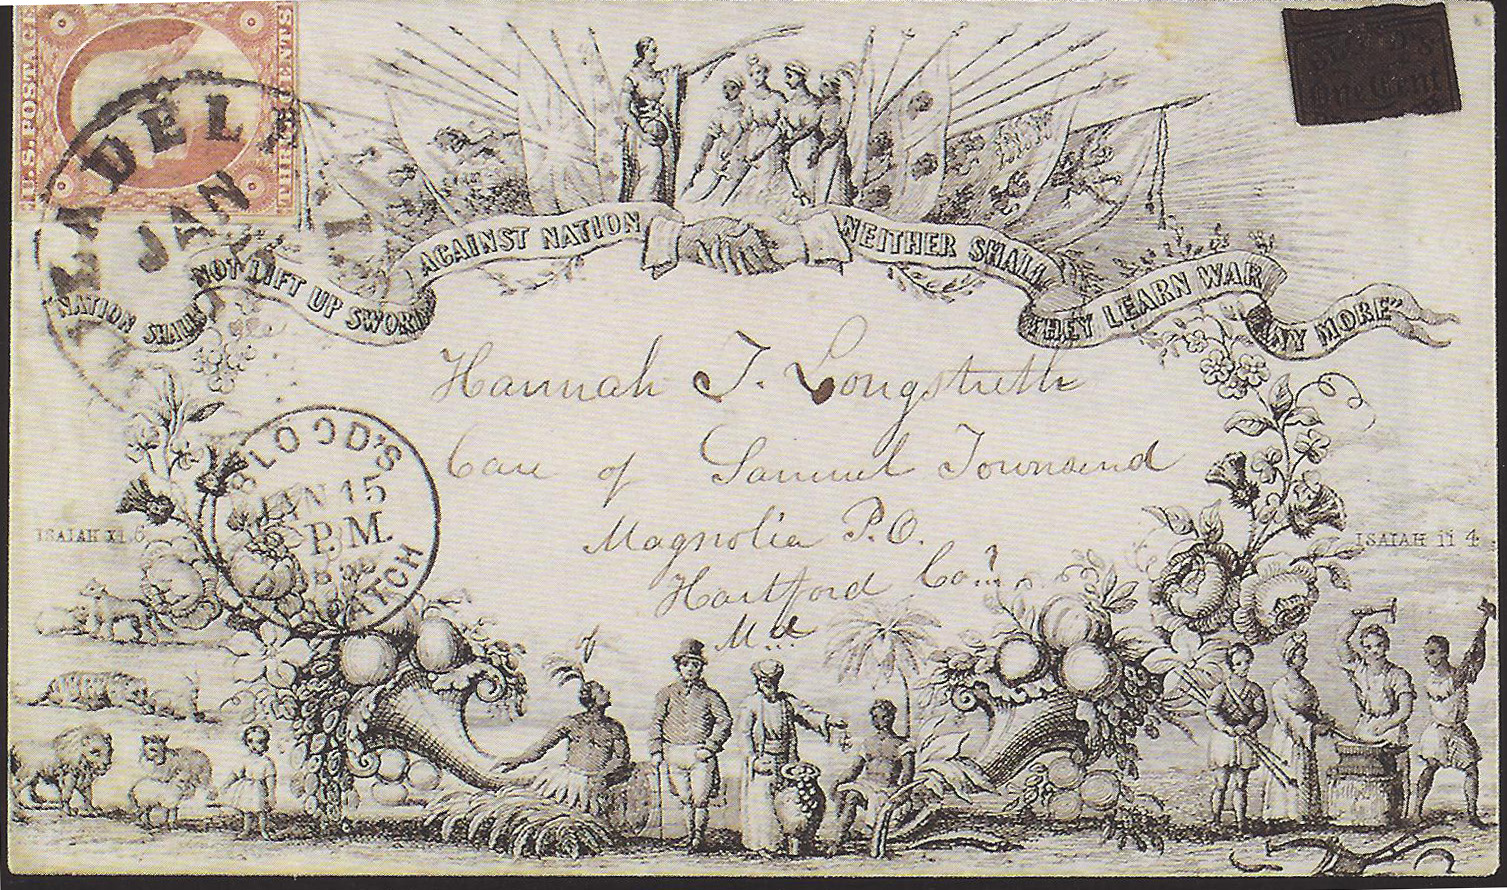 U.S. POSTAGE
THREE CENTS
PHILADEL
JAN
One Cent
"NATION SHALL NOT LIFT UP SWORD AGAINST NATION NEITHER SHALL THEY LEARN WAR ANY MORE"
Hannah J. Longstreth
Care of Samuel Townsend
Magnolia P.O.
Hartford Co.
Md
BLOOD'S
JAN 15
P.M.
ISAIAH XI.6.
ISAIAH 11 4